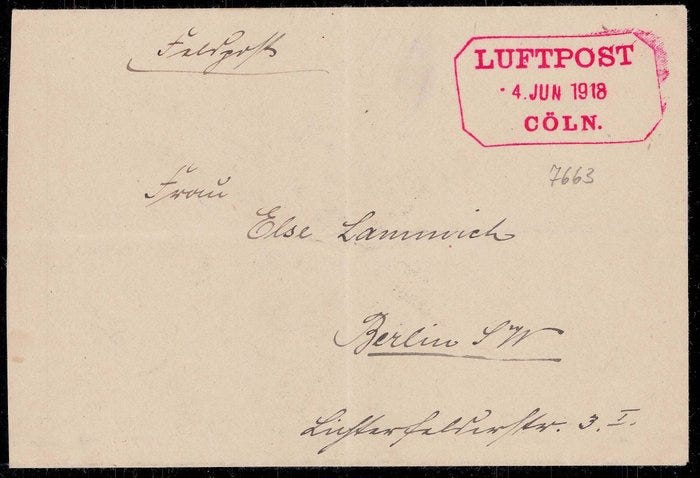 Feldpost
LUFTPOST
4. JUN 1918
CÖLN.
7663
Frau
Else Lammrich
Berlin SW
Lichterfelderstr. 3. I.